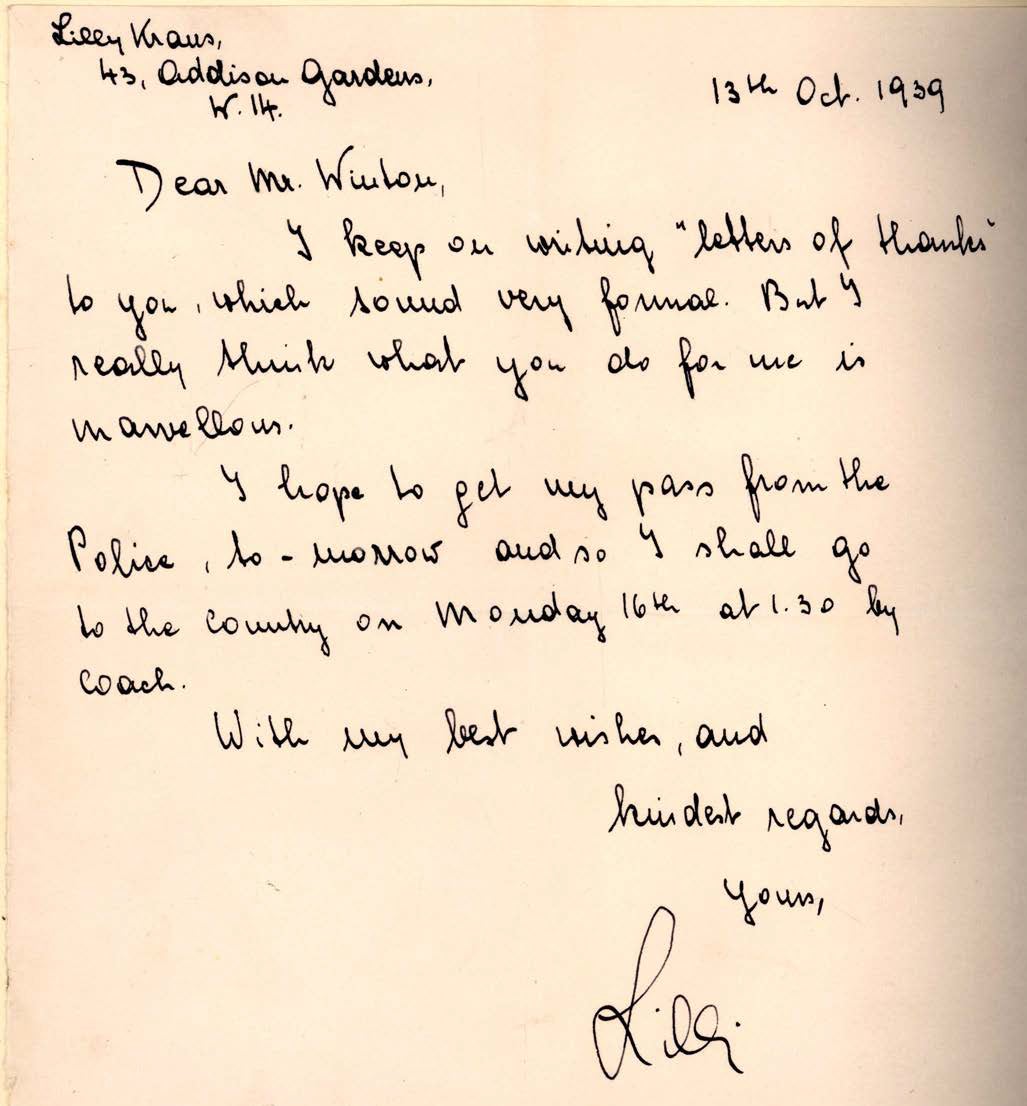 Lilly Kraus,
43, Addison Gardens,
W. 14.
13th Oct. 1939
Dear Mr. Winton,
I keep on writing "letters of thanks"
to you, which sound very formal. But I
really think what you do for me is
marvellous.
I hope to get my pass from the
Police, to-morrow and so I shall go
to the country on Monday 16th at 1.30 by
coach.
With my best wishes, and
kindest regards,
Yours,
Lilli